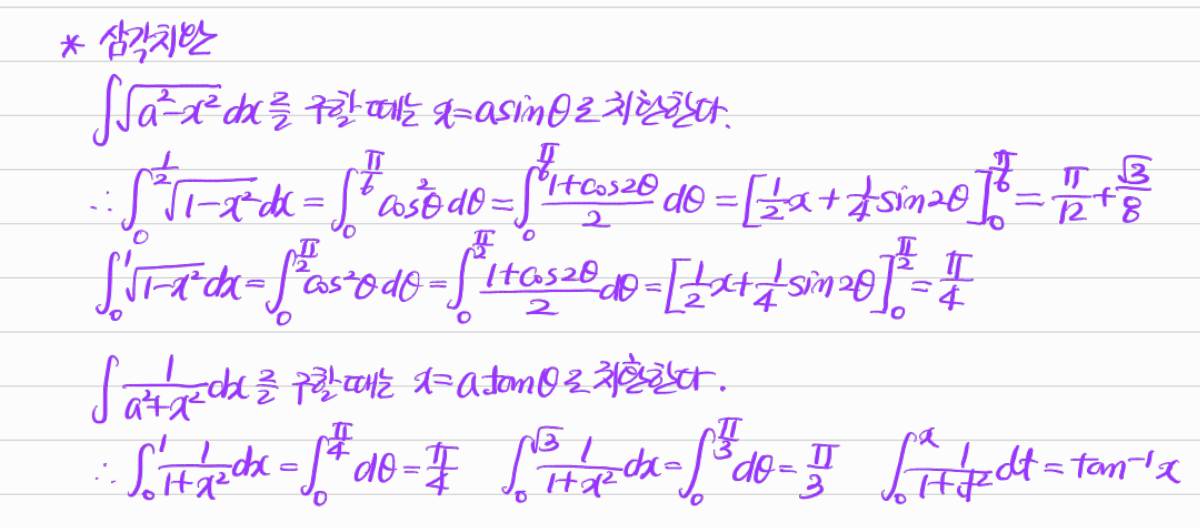 * 삼각치환
∫√(a²-x²) dx를 구할 때는 x=asinθ로 치환한다.
∴ ∫₀^(1/2) √(1-x²) dx = ∫₀^(π/6) cos²θ dθ = ∫₀^(π/6) (1+cos2θ)/2 dθ = [1/2 x + 1/4 sin2θ]₀^(π/6) = π/12 + √3/8
∫₀^1 √(1-x²) dx = ∫₀^(π/2) cos²θ dθ = ∫₀^(π/2) (1+cos2θ)/2 dθ = [1/2 x + 1/4 sin2θ]₀^(π/2) = π/4
∫ 1/(a²+x²) dx를 구할 때는 x=atanθ로 치환한다.
∴ ∫₀^1 1/(1+x²) dx = ∫₀^(π/4) dθ = π/4 ∫₀^(√3) 1/(1+x²) dx = ∫₀^(π/3) dθ = π/3 ∫₀^x 1/(1+t²) dt = tan⁻¹x